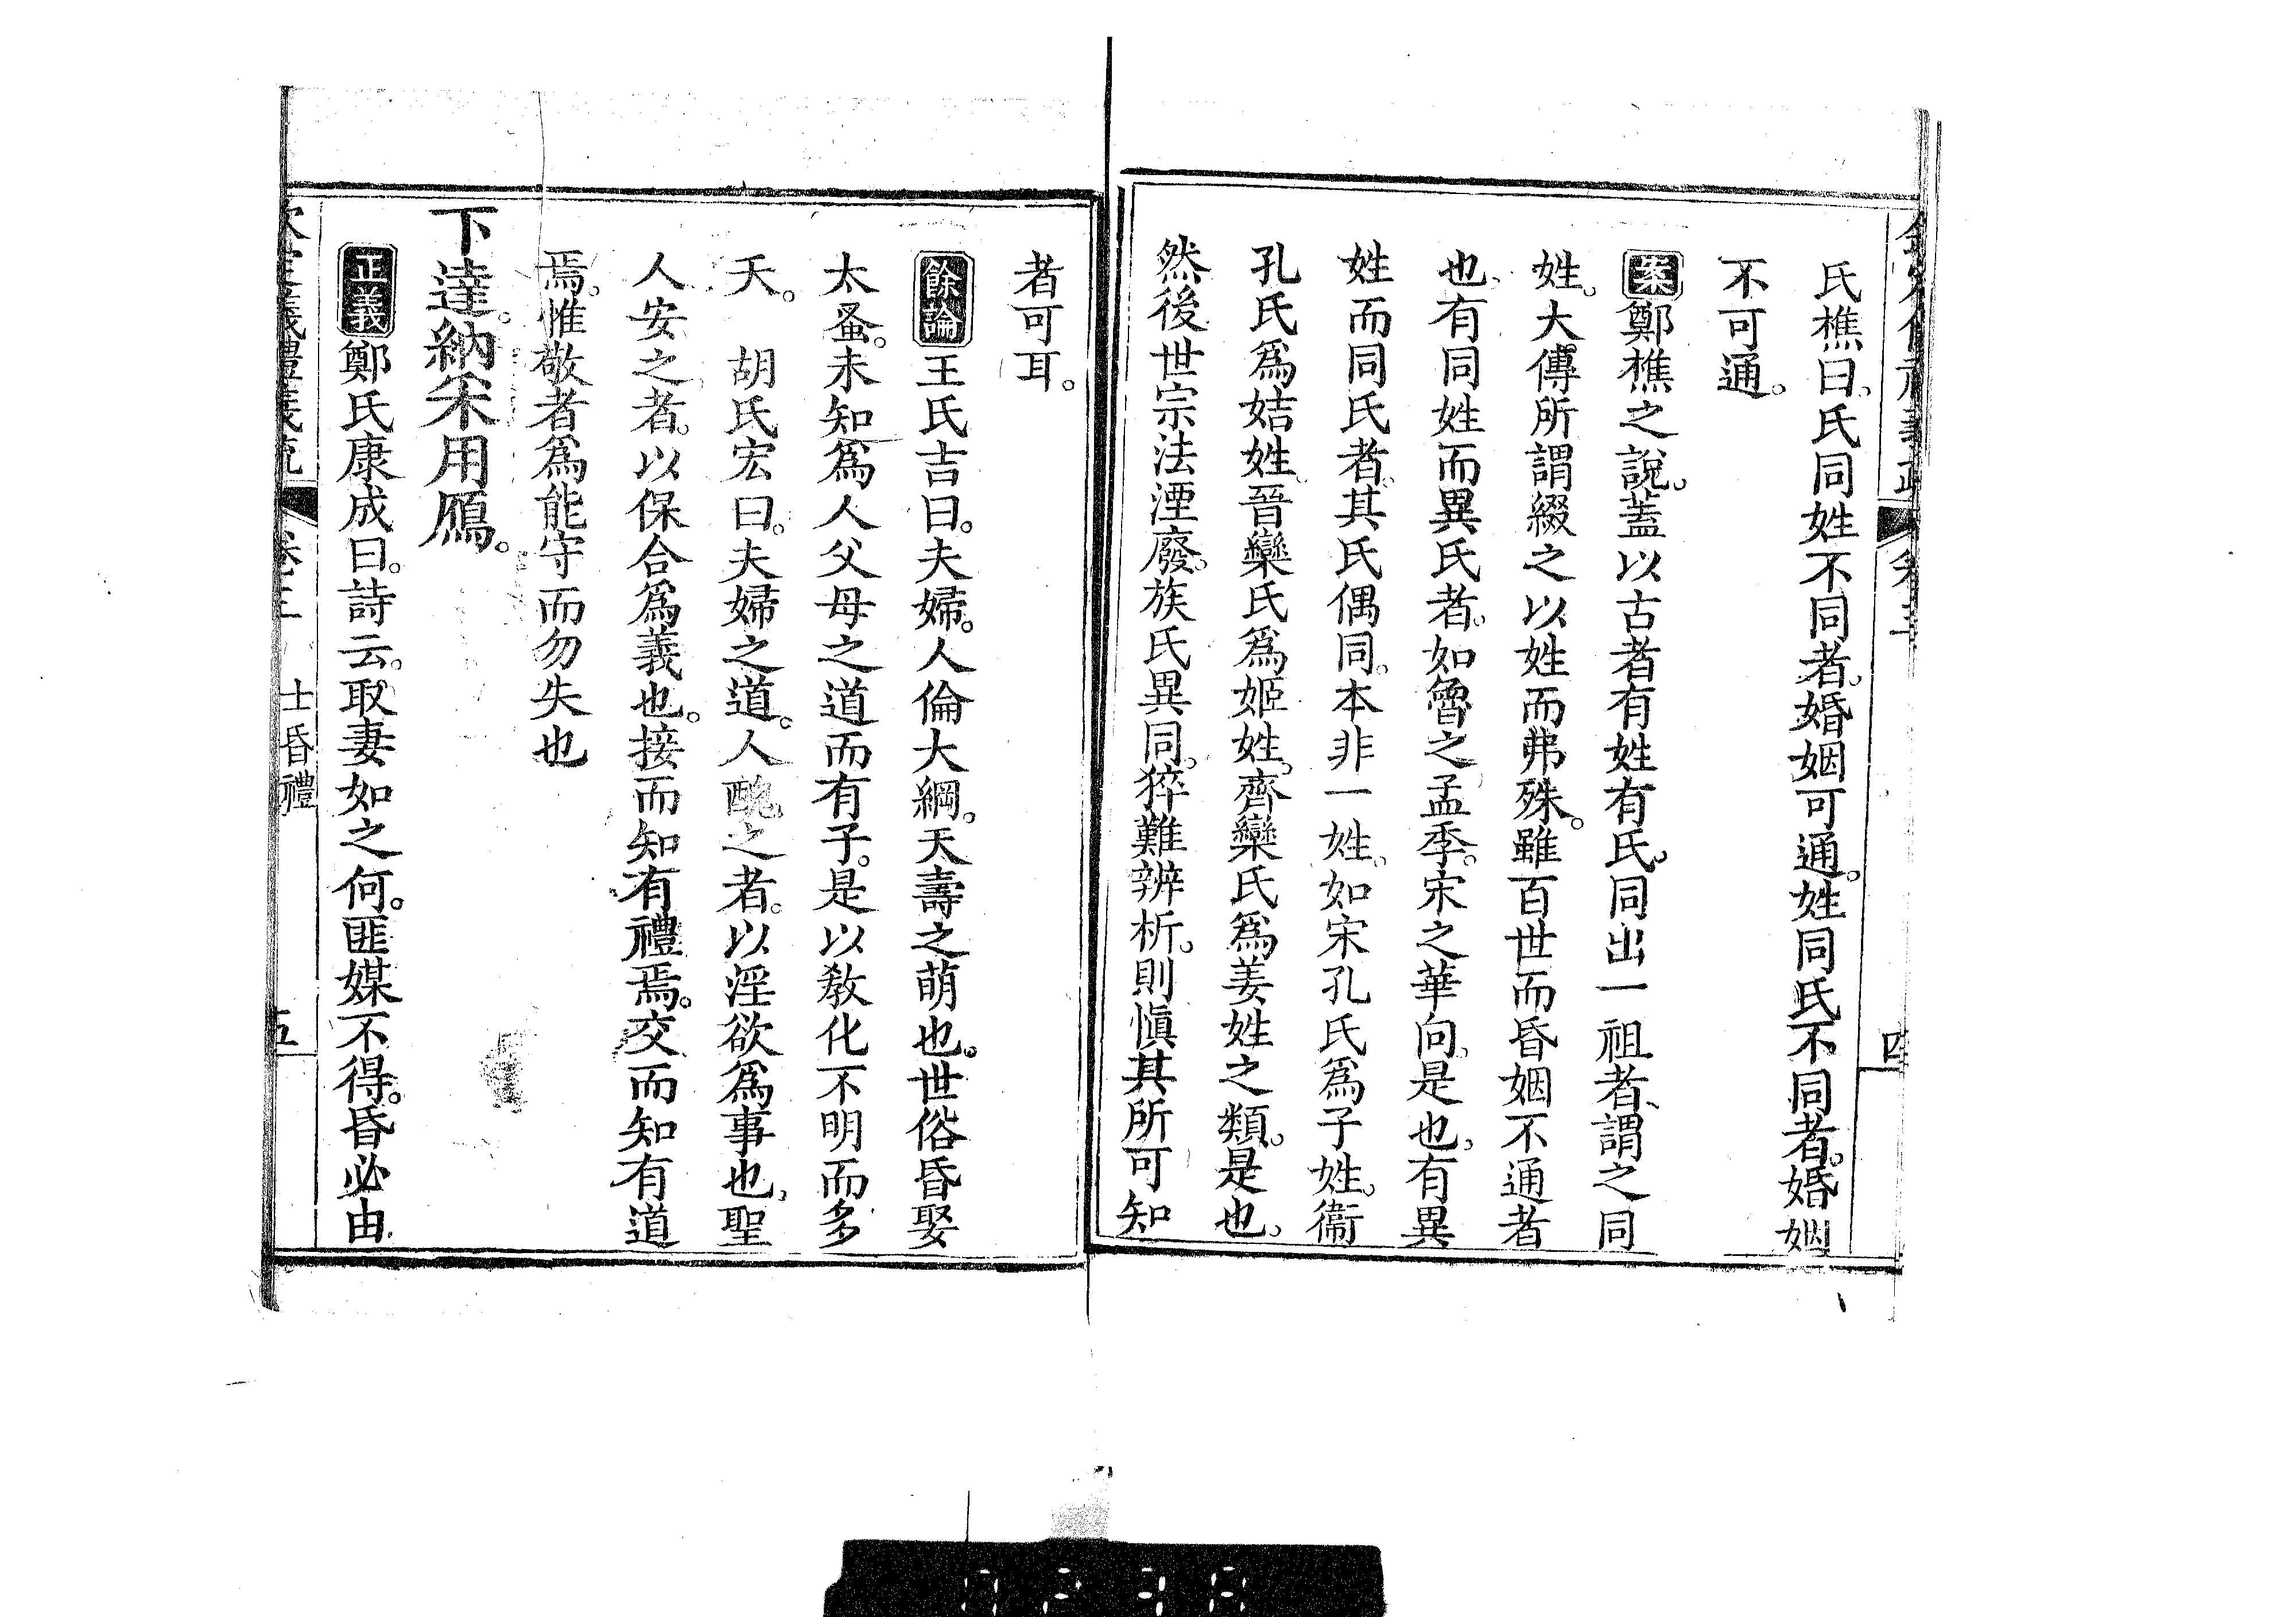 氏樵曰。氏同姓不同者。婚姻可通。姓同氏不同者。婚姻
不可通。
案鄭樵之說。蓋以古者有姓有氏。同出一祖者。謂之同
姓。大傳所謂綴之以姓而弗殊。雖百世而昏姻不通者
也。有同姓而異氏者。如魯之孟季。宋之華向。是也。有異
姓而同氏者。其氏偶同。本非一姓。如宋孔氏爲子姓。衞
孔氏爲姞姓。晉欒氏爲姬姓。齊欒氏爲姜姓之類。是也。
然後世宗法湮廢。族氏異同。猝難辨析。則愼其所可知
者可耳。
餘論王氏吉曰。夫婦。人倫大綱。夭壽之萌也。世俗昏娶
太蚤。未知爲人父母之道而有子。是以敎化不明而多
夭。 胡氏宏曰。夫婦之道。人醜之者。以淫欲爲事也。聖
人安之者。以保合爲義也。接而知有禮焉。交而知有道
焉。惟敬者爲能守而勿失也
下達。納采用鴈。
正義鄭氏康成曰。詩云。取妻如之何。匪媒不得。昏必由
士昏禮